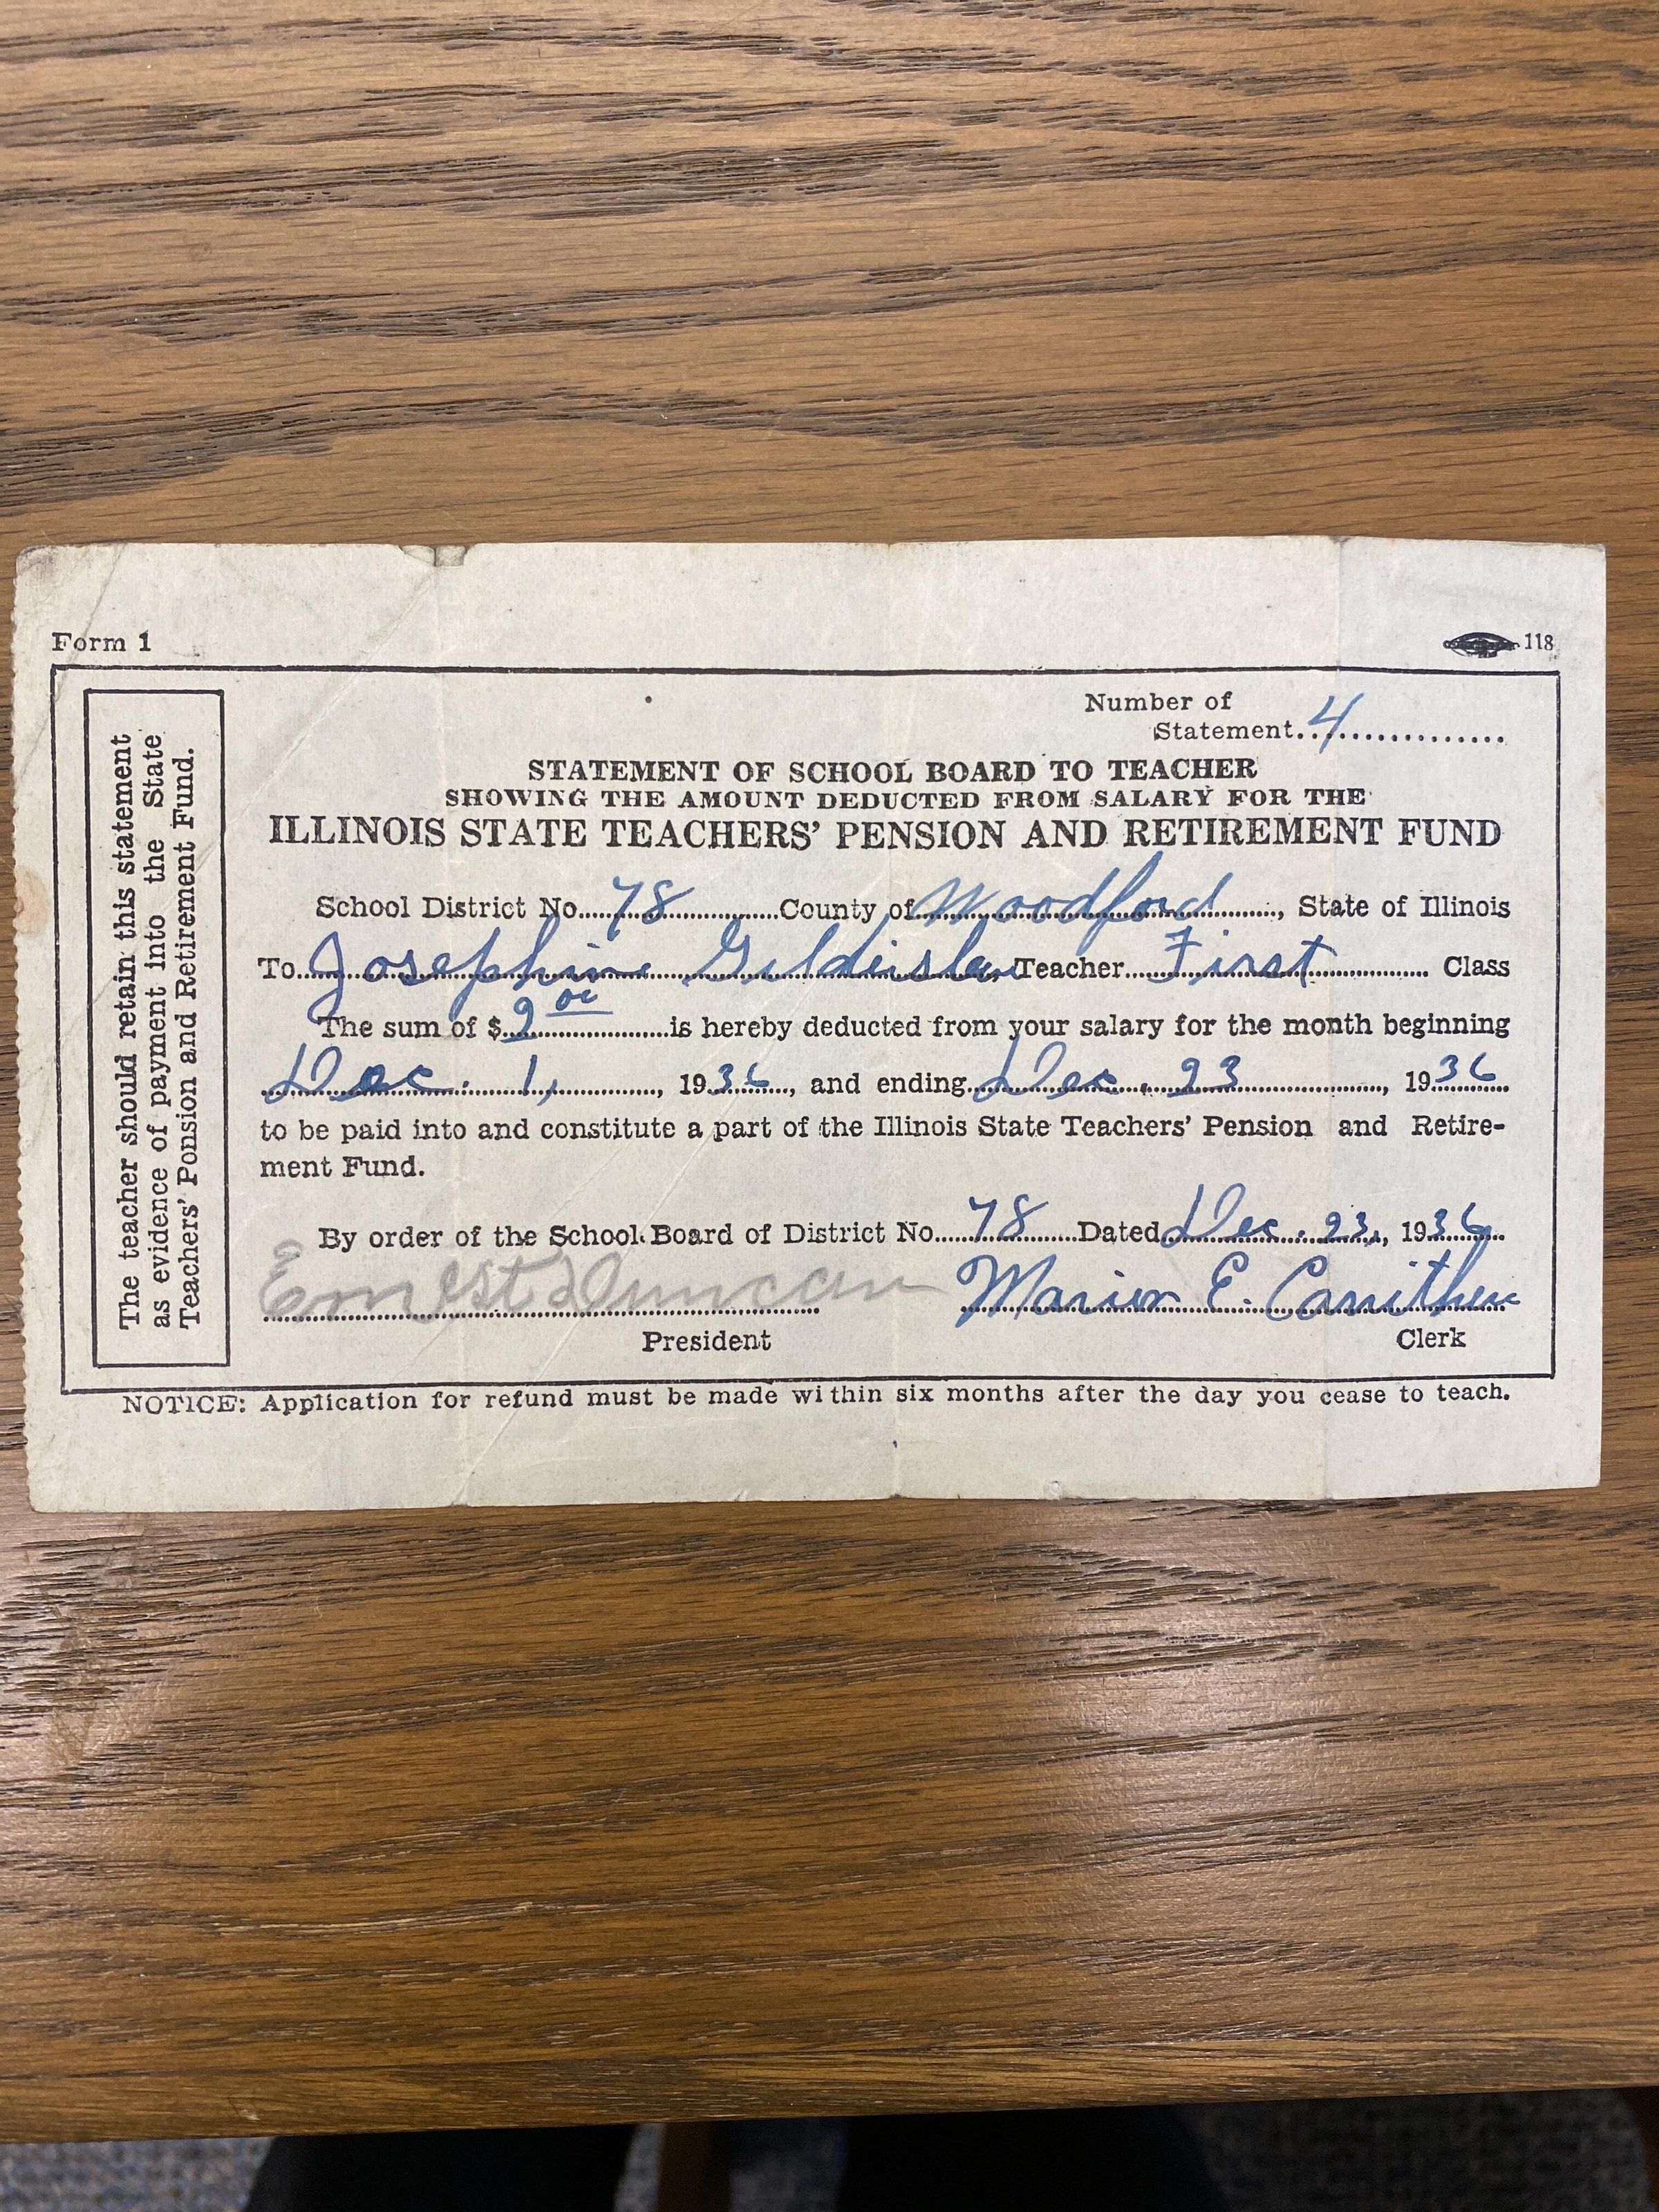 Form 1
118
The teacher should retain this statement
as evidence of payment into the State
Teachers' Ponsion and Retirement Fund.
Number of
Statement. 4
STATEMENT OF SCHOOL BOARD TO TEACHER
SHOWING THE AMOUNT DEDUCTED FROM SALARY FOR THE
ILLINOIS STATE TEACHERS' PENSION AND RETIREMENT FUND
School District No. 78 County of Woodford, State of Illinois
To Josephine Teacher First Class
The sum of $ 2 00 is hereby deducted from your salary for the month beginning
Dec. 1, 1936, and ending Dec. 23, 1936
to be paid into and constitute a part of the Illinois State Teachers' Pension and Retire-
ment Fund.
By order of the School Board of District No. 78 Dated Dec. 23, 1936
Ernest Duncan Marion E. Carrithers
President Clerk
NOTICE: Application for refund must be made within six months after the day you cease to teach.